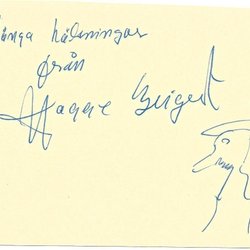 Många hälsningar
från
Hagge Geigert